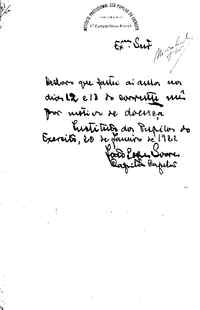 INSTITUTO PROFISSIONAL DOS PUPILOS DO EXERCITO
Exmo Snr
Declaro que faltei ás aulas nos
dias 12 e 13 do corrente mês
por motivo de doença
Instituto dos Pupilos do
Exercito, 20 de Janeiro de 19
Capitão Capelão